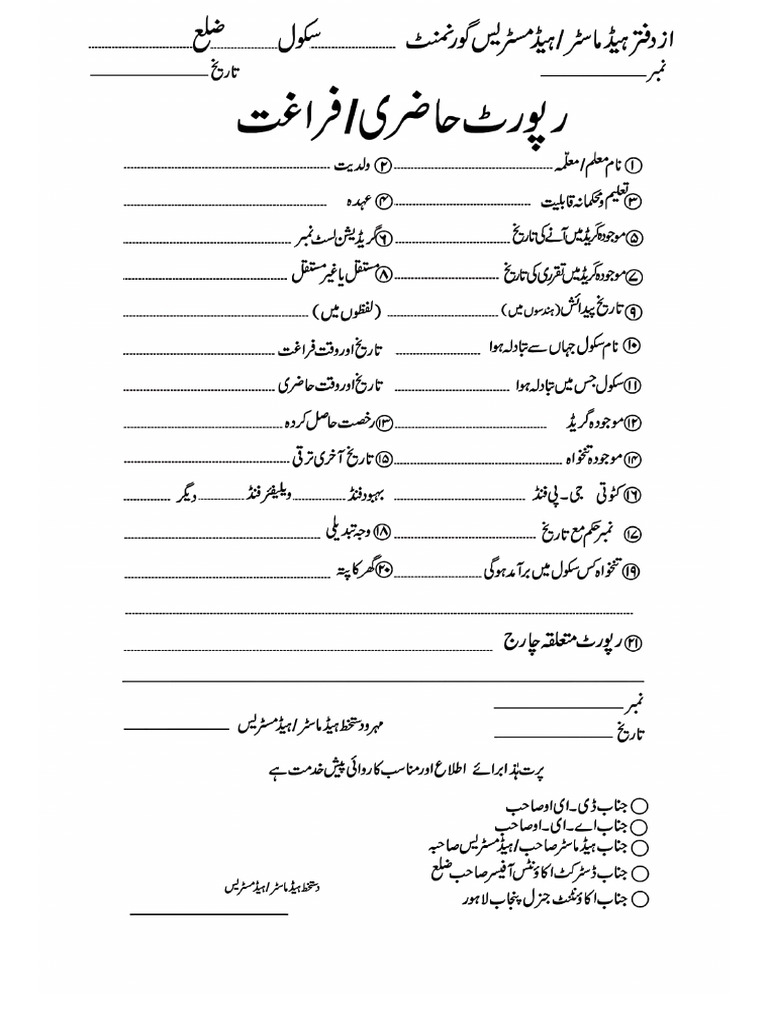 از دفتر ہیڈ ماسٹر/ہیڈ مسٹریس گورنمنٹ ........................ سکول ........................ ضلع ........................
نمبر ____________ تاریخ ____________
رپورٹ حاضری/فراغت
① نام معلم/معلّمہ ........................ ② ولدیت ........................
③ تعلیم و محکمانہ قابلیت ........................ ④ عہدہ ........................
⑤ موجودہ گریڈ میں آنے کی تاریخ ........................ ⑥ گریڈیشن لسٹ نمبر ........................
⑦ موجودہ گریڈ میں تقرری کی تاریخ ........................ ⑧ مستقل یا غیر مستقل ........................
⑨ تاریخ پیدائش (ہندسوں میں) ........................ (لفظوں میں) ........................
⑩ نام سکول جہاں سے تبادلہ ہوا ........................ تاریخ اور وقت فراغت ........................
⑪ سکول جس میں تبادلہ ہوا ........................ تاریخ اور وقت حاضری ........................
⑫ موجودہ گریڈ ........................ ⑬ رخصت حاصل کردہ ........................
⑭ موجودہ تنخواہ ........................ ⑮ تاریخ آخری ترقی ........................
⑯ کٹوتی جی۔پی فنڈ ........................ بہبود فنڈ ............ ویلیفئر فنڈ ............ دیگر ............
⑰ نمبر حکم مع تاریخ ........................ ⑱ وجہ تبدیلی ........................
⑲ تنخواہ کس سکول میں برآمد ہوگی ........................ ⑳ گھر کا پتہ ........................
㉑ رپورٹ متعلقہ چارج ........................
نمبر ____________
تاریخ ____________ مہر و دستخط ہیڈ ماسٹر/ہیڈ مسٹریس ____________
پرت ہٰذا برائے اطلاع اور مناسب کاروائی پیش خدمت ہے
○ جناب ڈی۔ای او صاحب
○ جناب اے۔ای۔او صاحب
○ جناب ہیڈ ماسٹر صاحب/ہیڈ مسٹریس صاحبہ
○ جناب ڈسٹرکٹ اکاؤنٹس آفیسر صاحب ضلع
○ جناب اکاؤنٹنٹ جنرل پنجاب لاہور
دستخط ہیڈ ماسٹر/ہیڈ مسٹریس